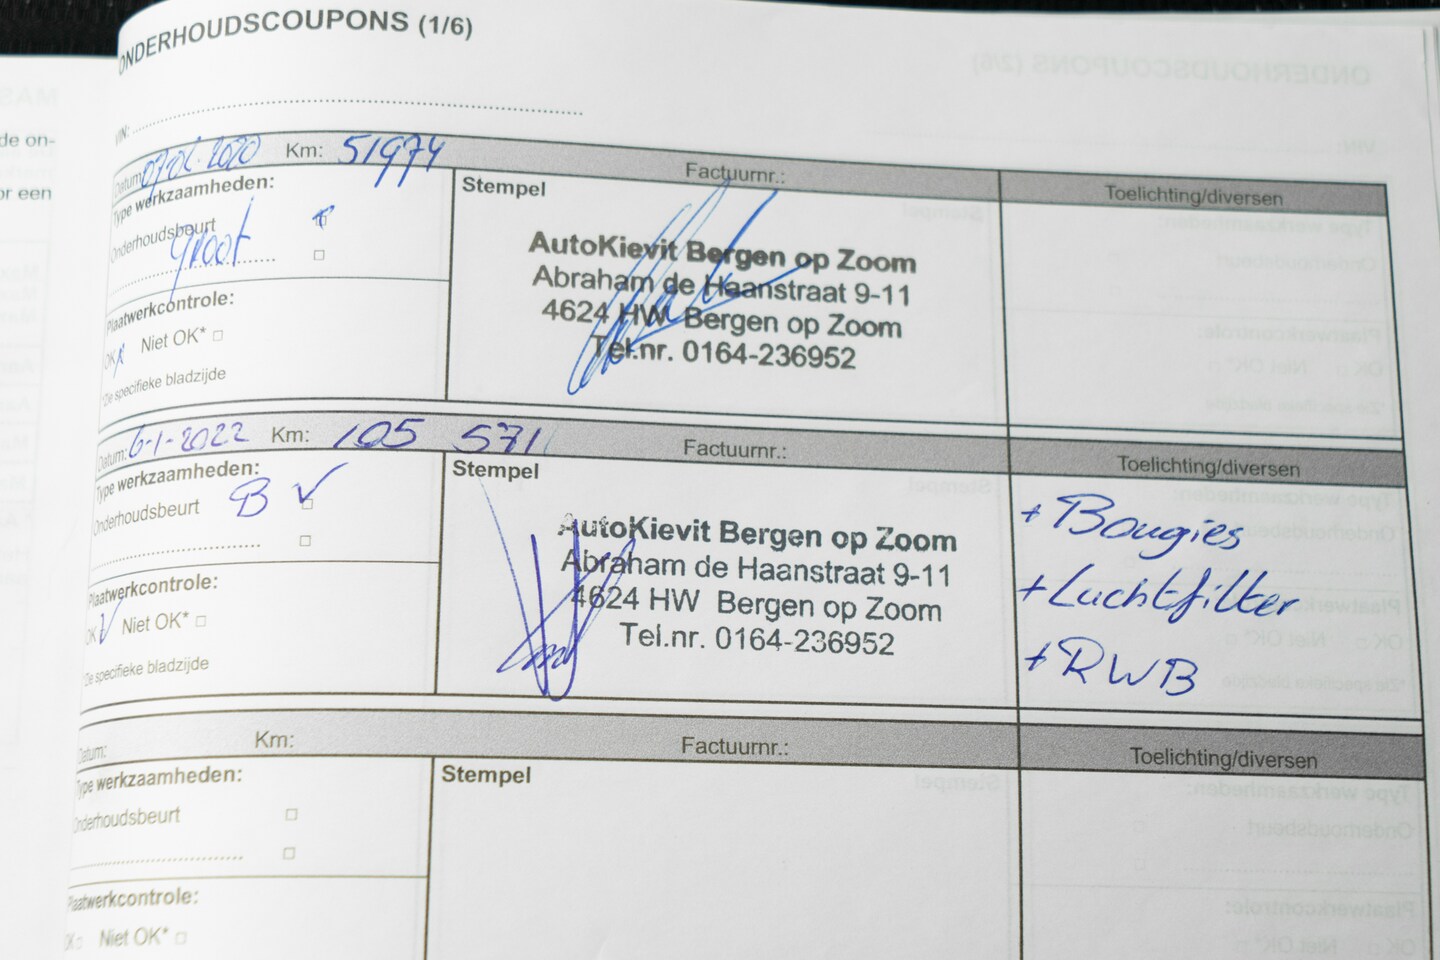 ONDERHOUDSCOUPONS (1/6)
VIN:
Datum: 07-02-2020 Km: 51974 Factuurnr.: Toelichting/diversen
Type werkzaamheden:
Onderhoudsbeurt
groot
Plaatwerkcontrole:
OK Niet OK*
*De specifieke bladzijde
Stempel
AutoKievit Bergen op Zoom
Abraham de Haanstraat 9-11
4624 HW Bergen op Zoom
Tel.nr. 0164-236952
Datum: 6-1-2022 Km: 105 571 Factuurnr.: Toelichting/diversen
Type werkzaamheden:
Onderhoudsbeurt B
Plaatwerkcontrole:
OK Niet OK*
*De specifieke bladzijde
Stempel
AutoKievit Bergen op Zoom
Abraham de Haanstraat 9-11
4624 HW Bergen op Zoom
Tel.nr. 0164-236952
+ Bougies
+ Luchtfilter
+ RWB
Datum: Km: Factuurnr.: Toelichting/diversen
Type werkzaamheden:
Onderhoudsbeurt
Plaatwerkcontrole:
OK Niet OK*
Stempel
de on-
or een